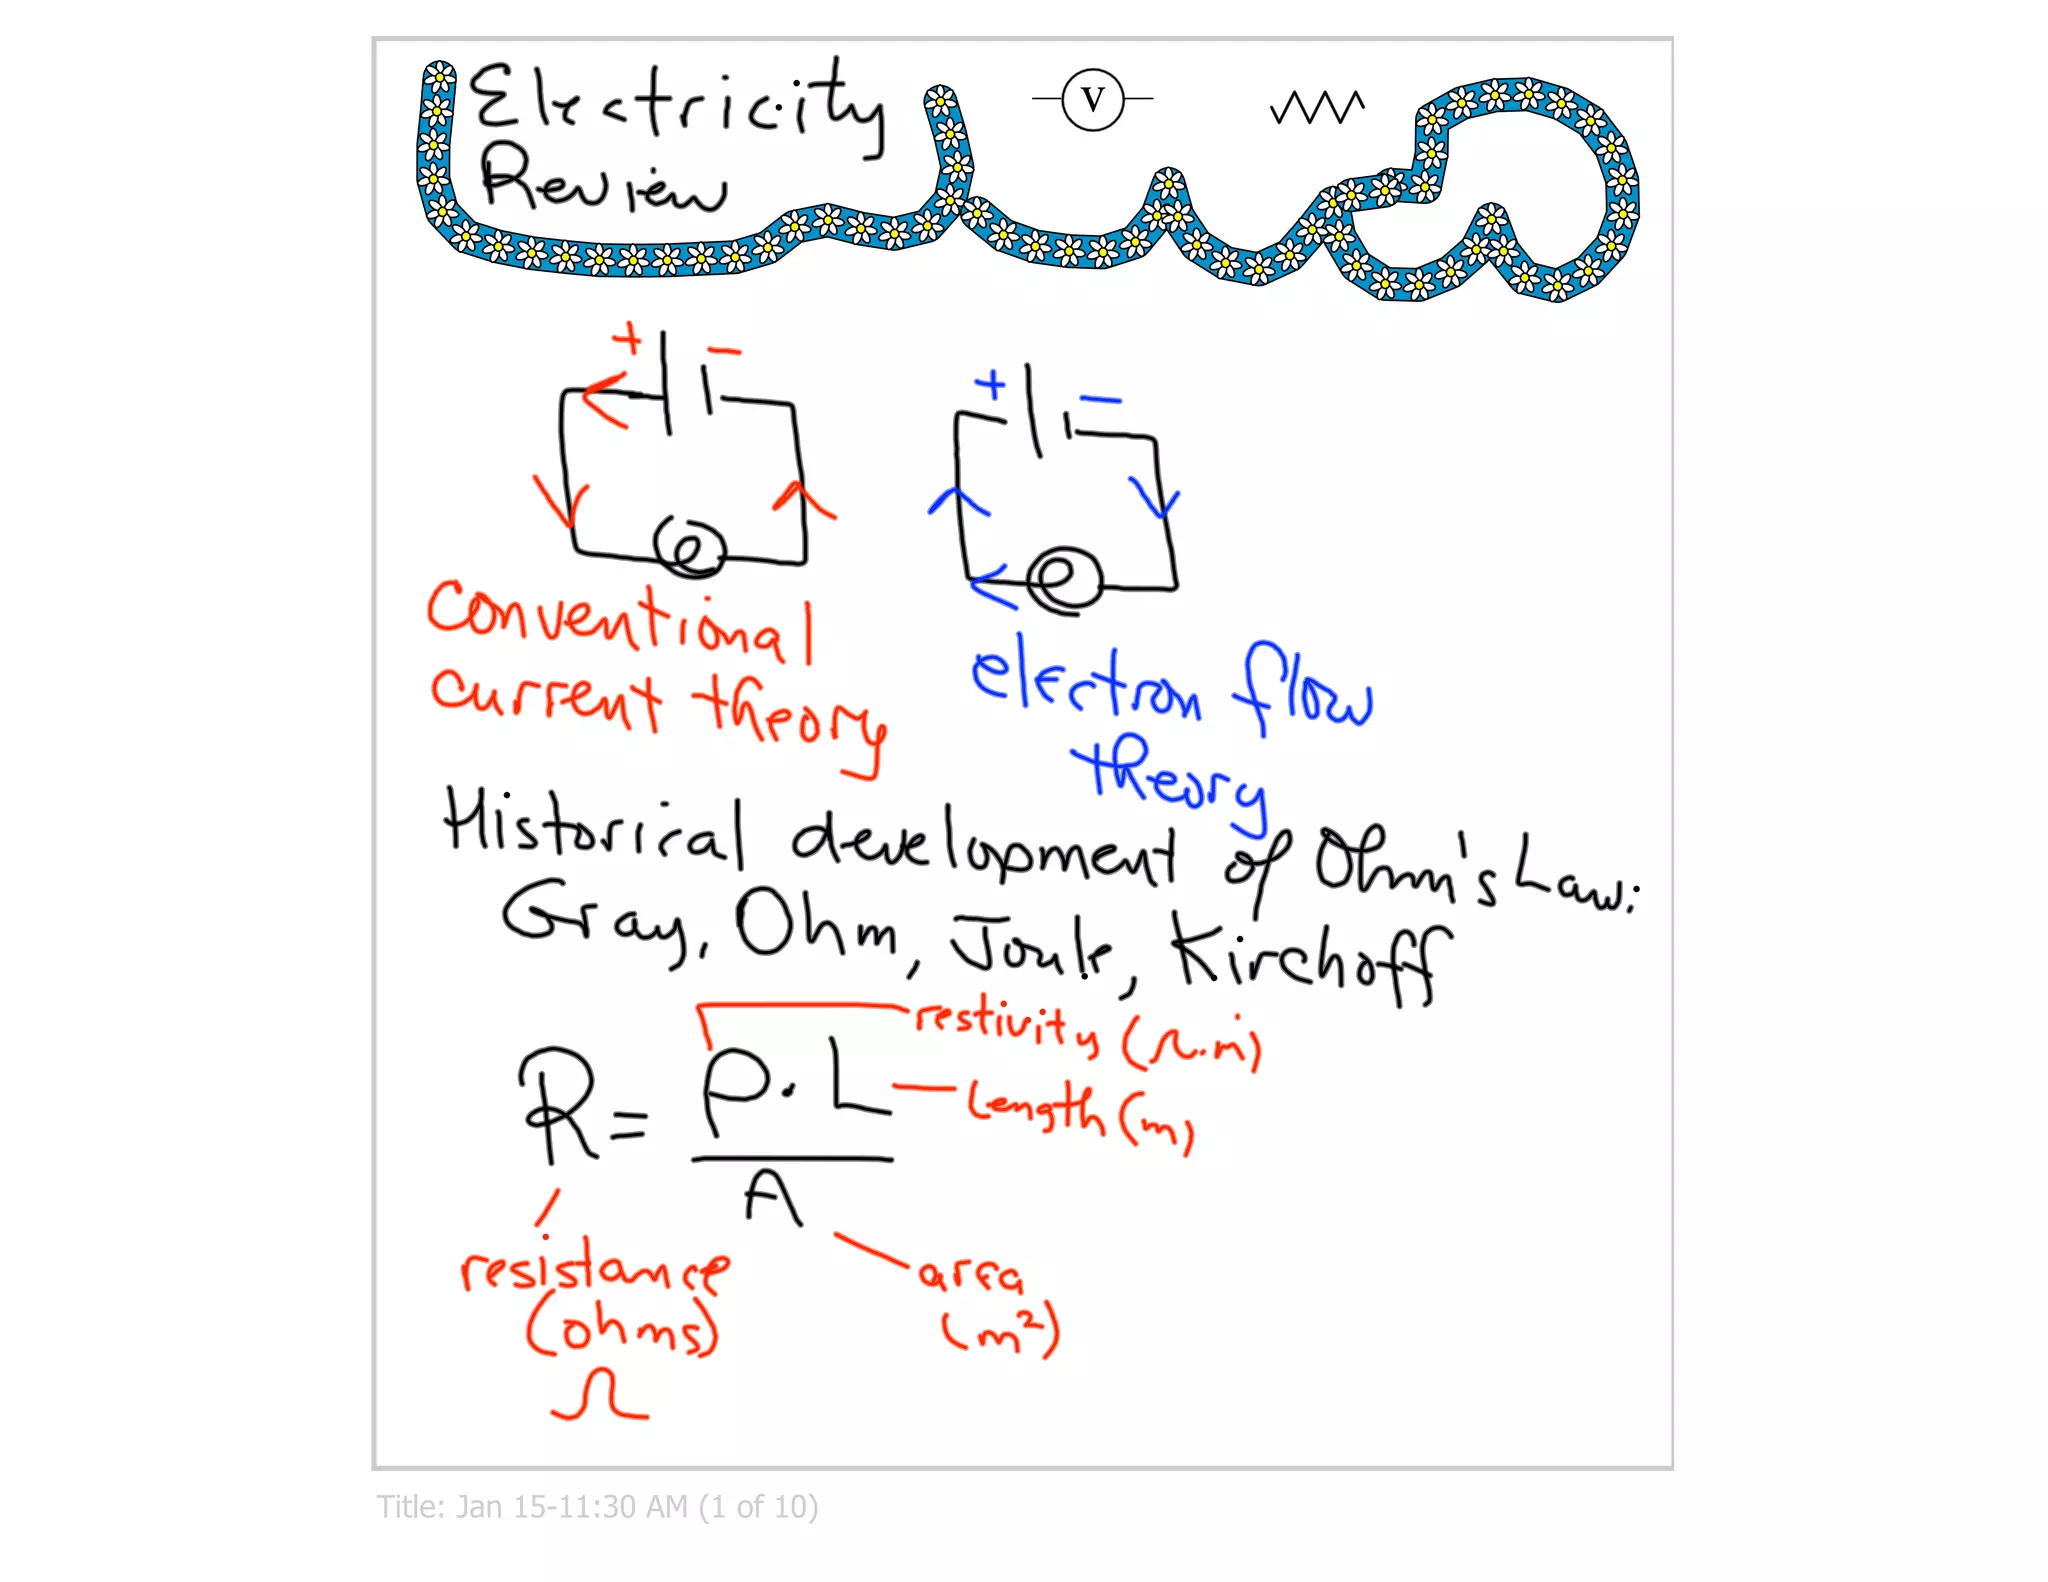 Electricity
Review
V
+ -
+ -
conventional
current theory
electron flow
theory
Historical development of Ohm's Law:
Gray, Ohm, Joule, Kirchoff
restivity (Ω·m)
R = ρ·L
A
length (m)
resistance
(ohms)
Ω
area
(m²)
Title: Jan 15-11:30 AM (1 of 10)